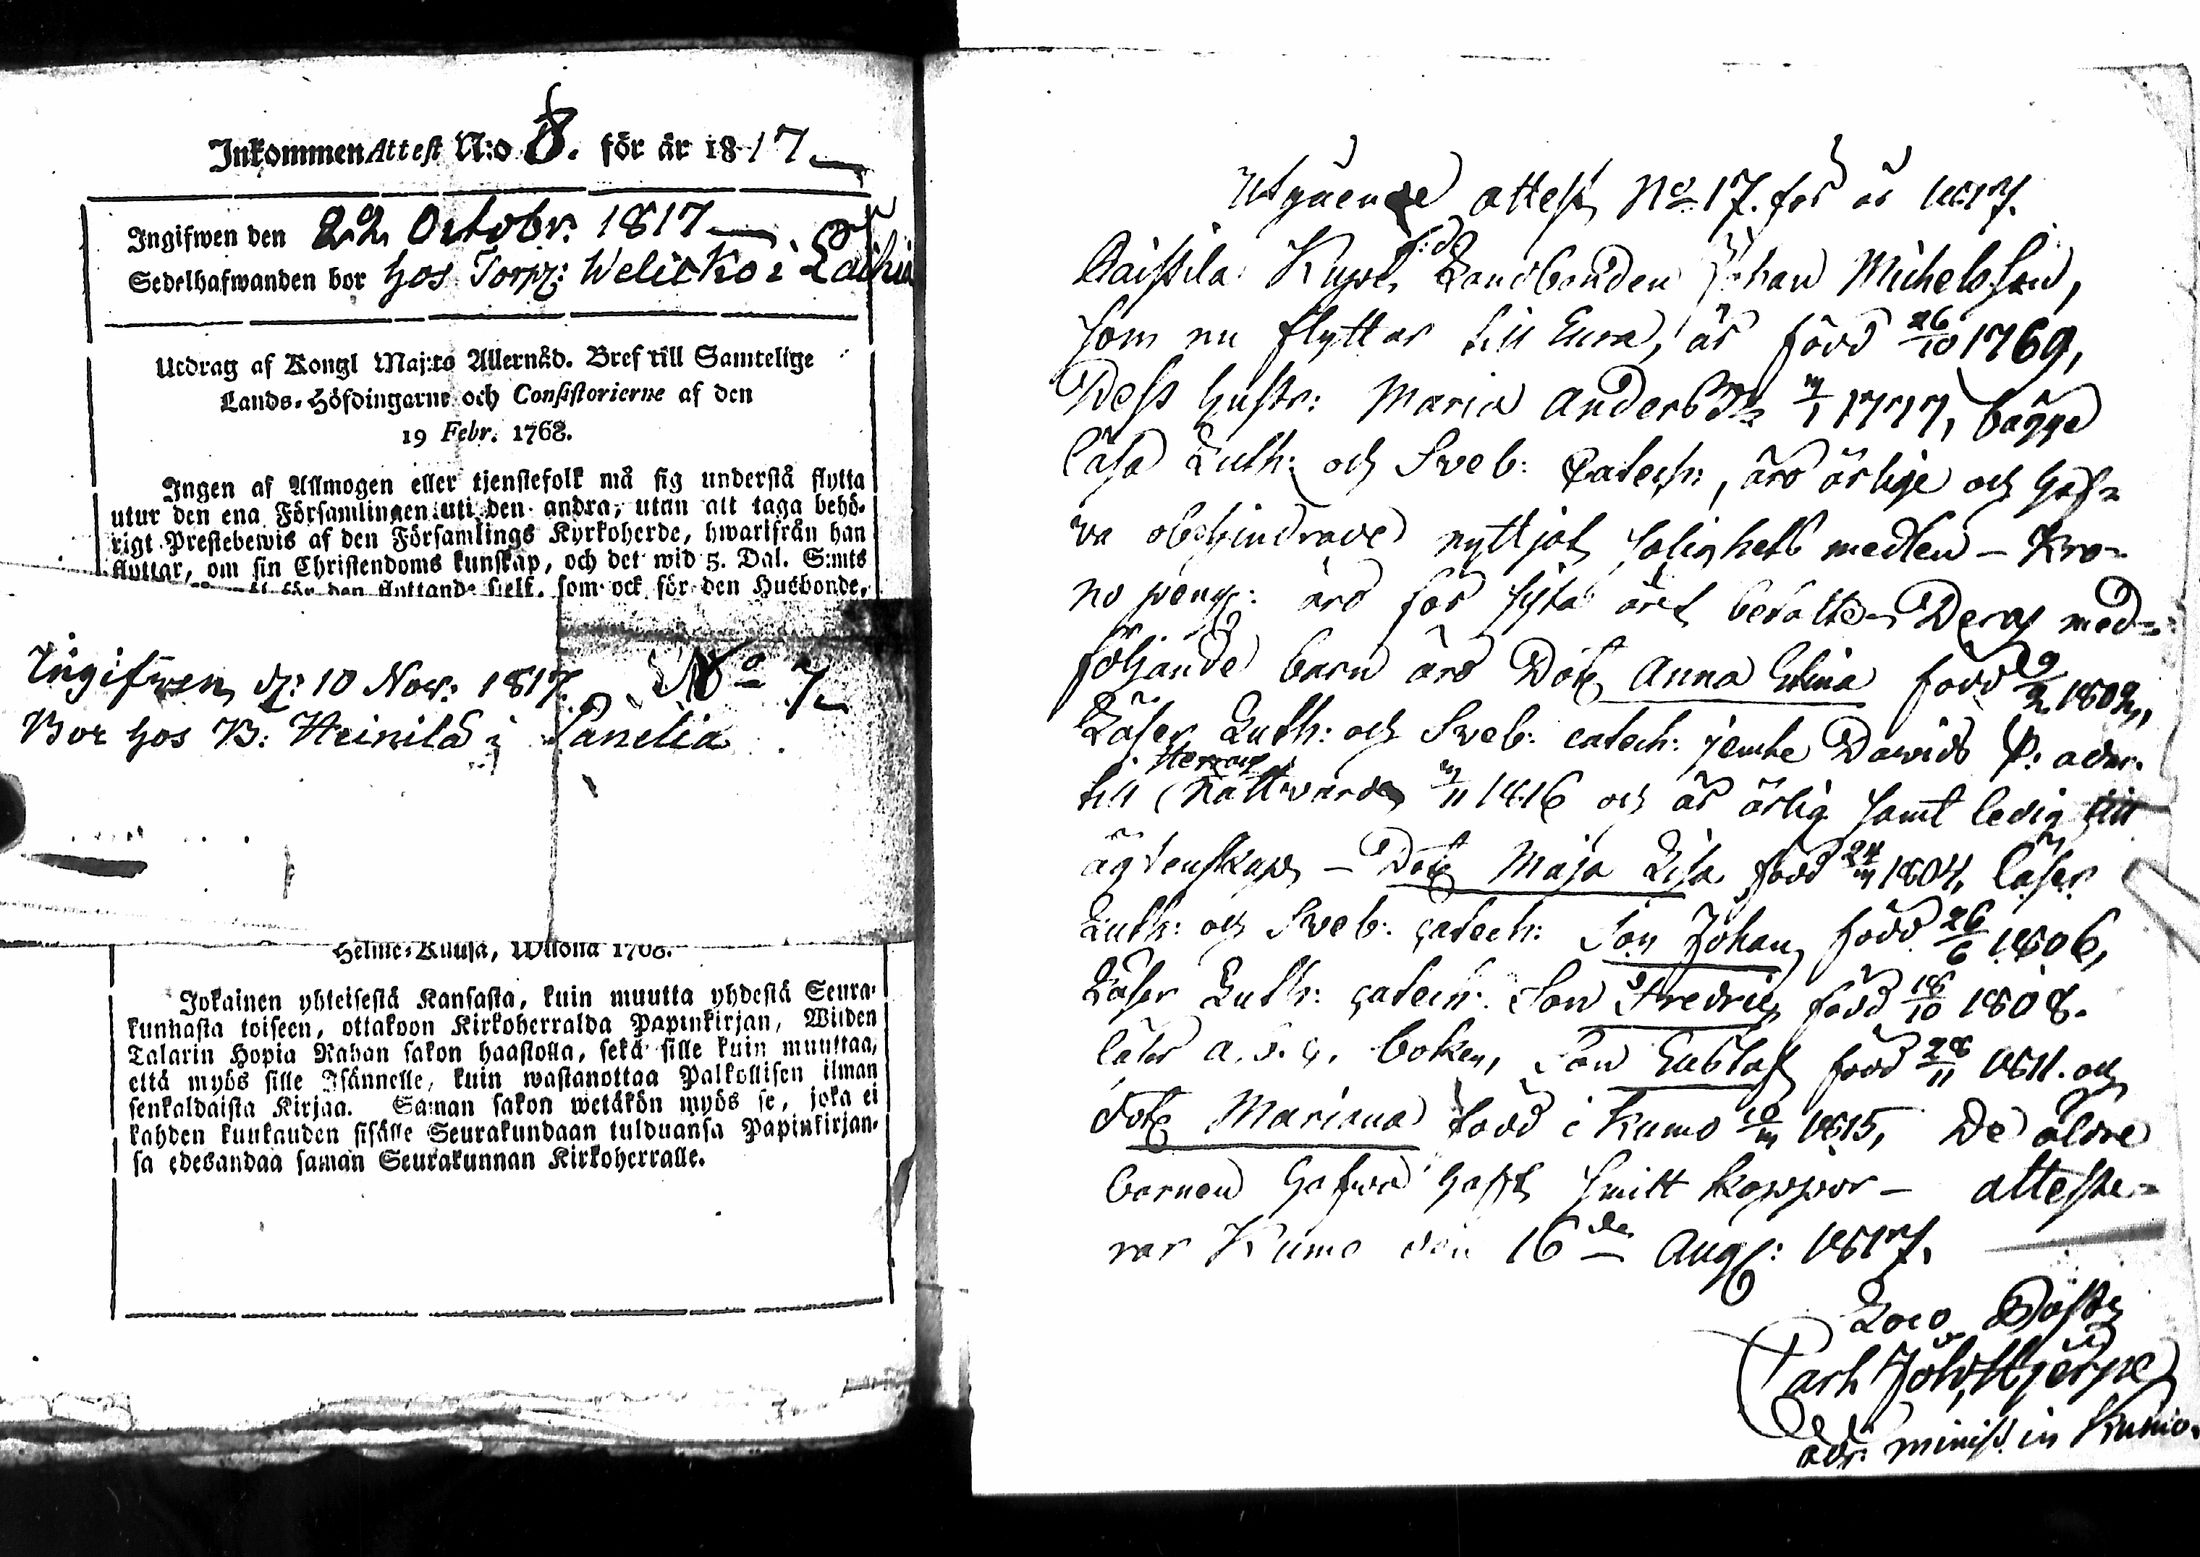 Inkommen Attest N:o 8. för år 1817
Ingifwen den 22 Octobr. 1817
Sedelhafwanden bor hos Torp: Welicko i
Utdrag af Kongl Maj:ts Allernåd. Bref till Samtelige
Lands-Höfdingarne och Consistorierne af den
19 Febr. 1768.
Ingen af Allmogen eller tjenstefolk må sig understå flytta
utur den ena Församlingen uti den andra, utan att taga behö-
rigt Prestebewis af den Församlings Kyrkoherde, hwarifrån han
flyttar, om sin Christendoms kunskap, och det wid 5. Dal. S:mts
för den flyttande sielf, som ock för den Husbonde,
Ingifwen d: 10 Nov: 1817. No 7
Bor hos B: Heinilä i Panelia
Helme-Kuusa, Wuona 1768.
Jokainen yhteisestä Kansasta, kuin muutta yhdestä Seura-
kunnasta toiseen, ottakoon Kirkoherralda Papinkirjan, Wiiden
Talarin Hopia Rahan sakon haastolla, sekä sille kuin muuttaa,
että myös sille Isännelle, kuin wastanottaa Palkollisen ilman
senkaldaista Kirjaa. Saman sakon wetäkön myös se, joka ei
kahden kuukauden sisälle Seurakundaan tulduansa Papinkirjan-
sa edesandaa saman Seurakunnan Kirkoherralle.
Utgående attest No 17. för år 1817.
Landbonden Johan Michelsson,
som nu flyttar till Eura, är född 26/10 1769,
Dess hustr: Maria Andersdr 1777, bägge
läsa Luth: och Sveb: Catech:, äro ärlige och haf-
va obehindrade nyttjat salighets medlen – Kro-
no peng: äro för sista året betalte – Deras med-
följande barn äro Dotr Anna Elina född 9/2 1802,
Läser Luth: och Sveb: catech: jemte Davids P: adm.
till Herrans Nattvard 1816 och är ärlig samt ledig till
ägtenskap – Dotr Maja Lisa född 24/7 1804, läser
Luth: och Sveb: catech: Son Johan född 26/6 1806,
Läser Luth: catech: Son Fredric född 18/10 1808.
läser a.b.c. boken, Son Gustaf född 28/11 1811. och
dotr Mariana född i Kumo 1815, De äldre
barnen hafva haft smitt koppor – atteste-
rar Kumo den 16de Aug: 1817.
Loco Past:
Carl Joh.
adj: minist. in Kumo.